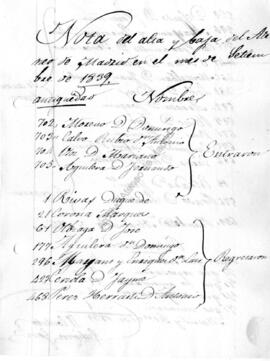 Nota del alta y baja del Ate
neo de Madrid en el mes de Setiem
bre de 1839.
antiguedad Nombres
702. Moreno D. Domingo
703. Calvo Rubio D. Antonio
704. D. Mariano
705. Aguilera D. Fernando
Entraron
1 Rivas duque de
21 Corona Marques
61 Olózaga D. José
177 Aguilera D. Domingo
296 D. Luis
427 Cerdá D. Jayme
468 Perez Herrasti D. Antonio
Regresaron